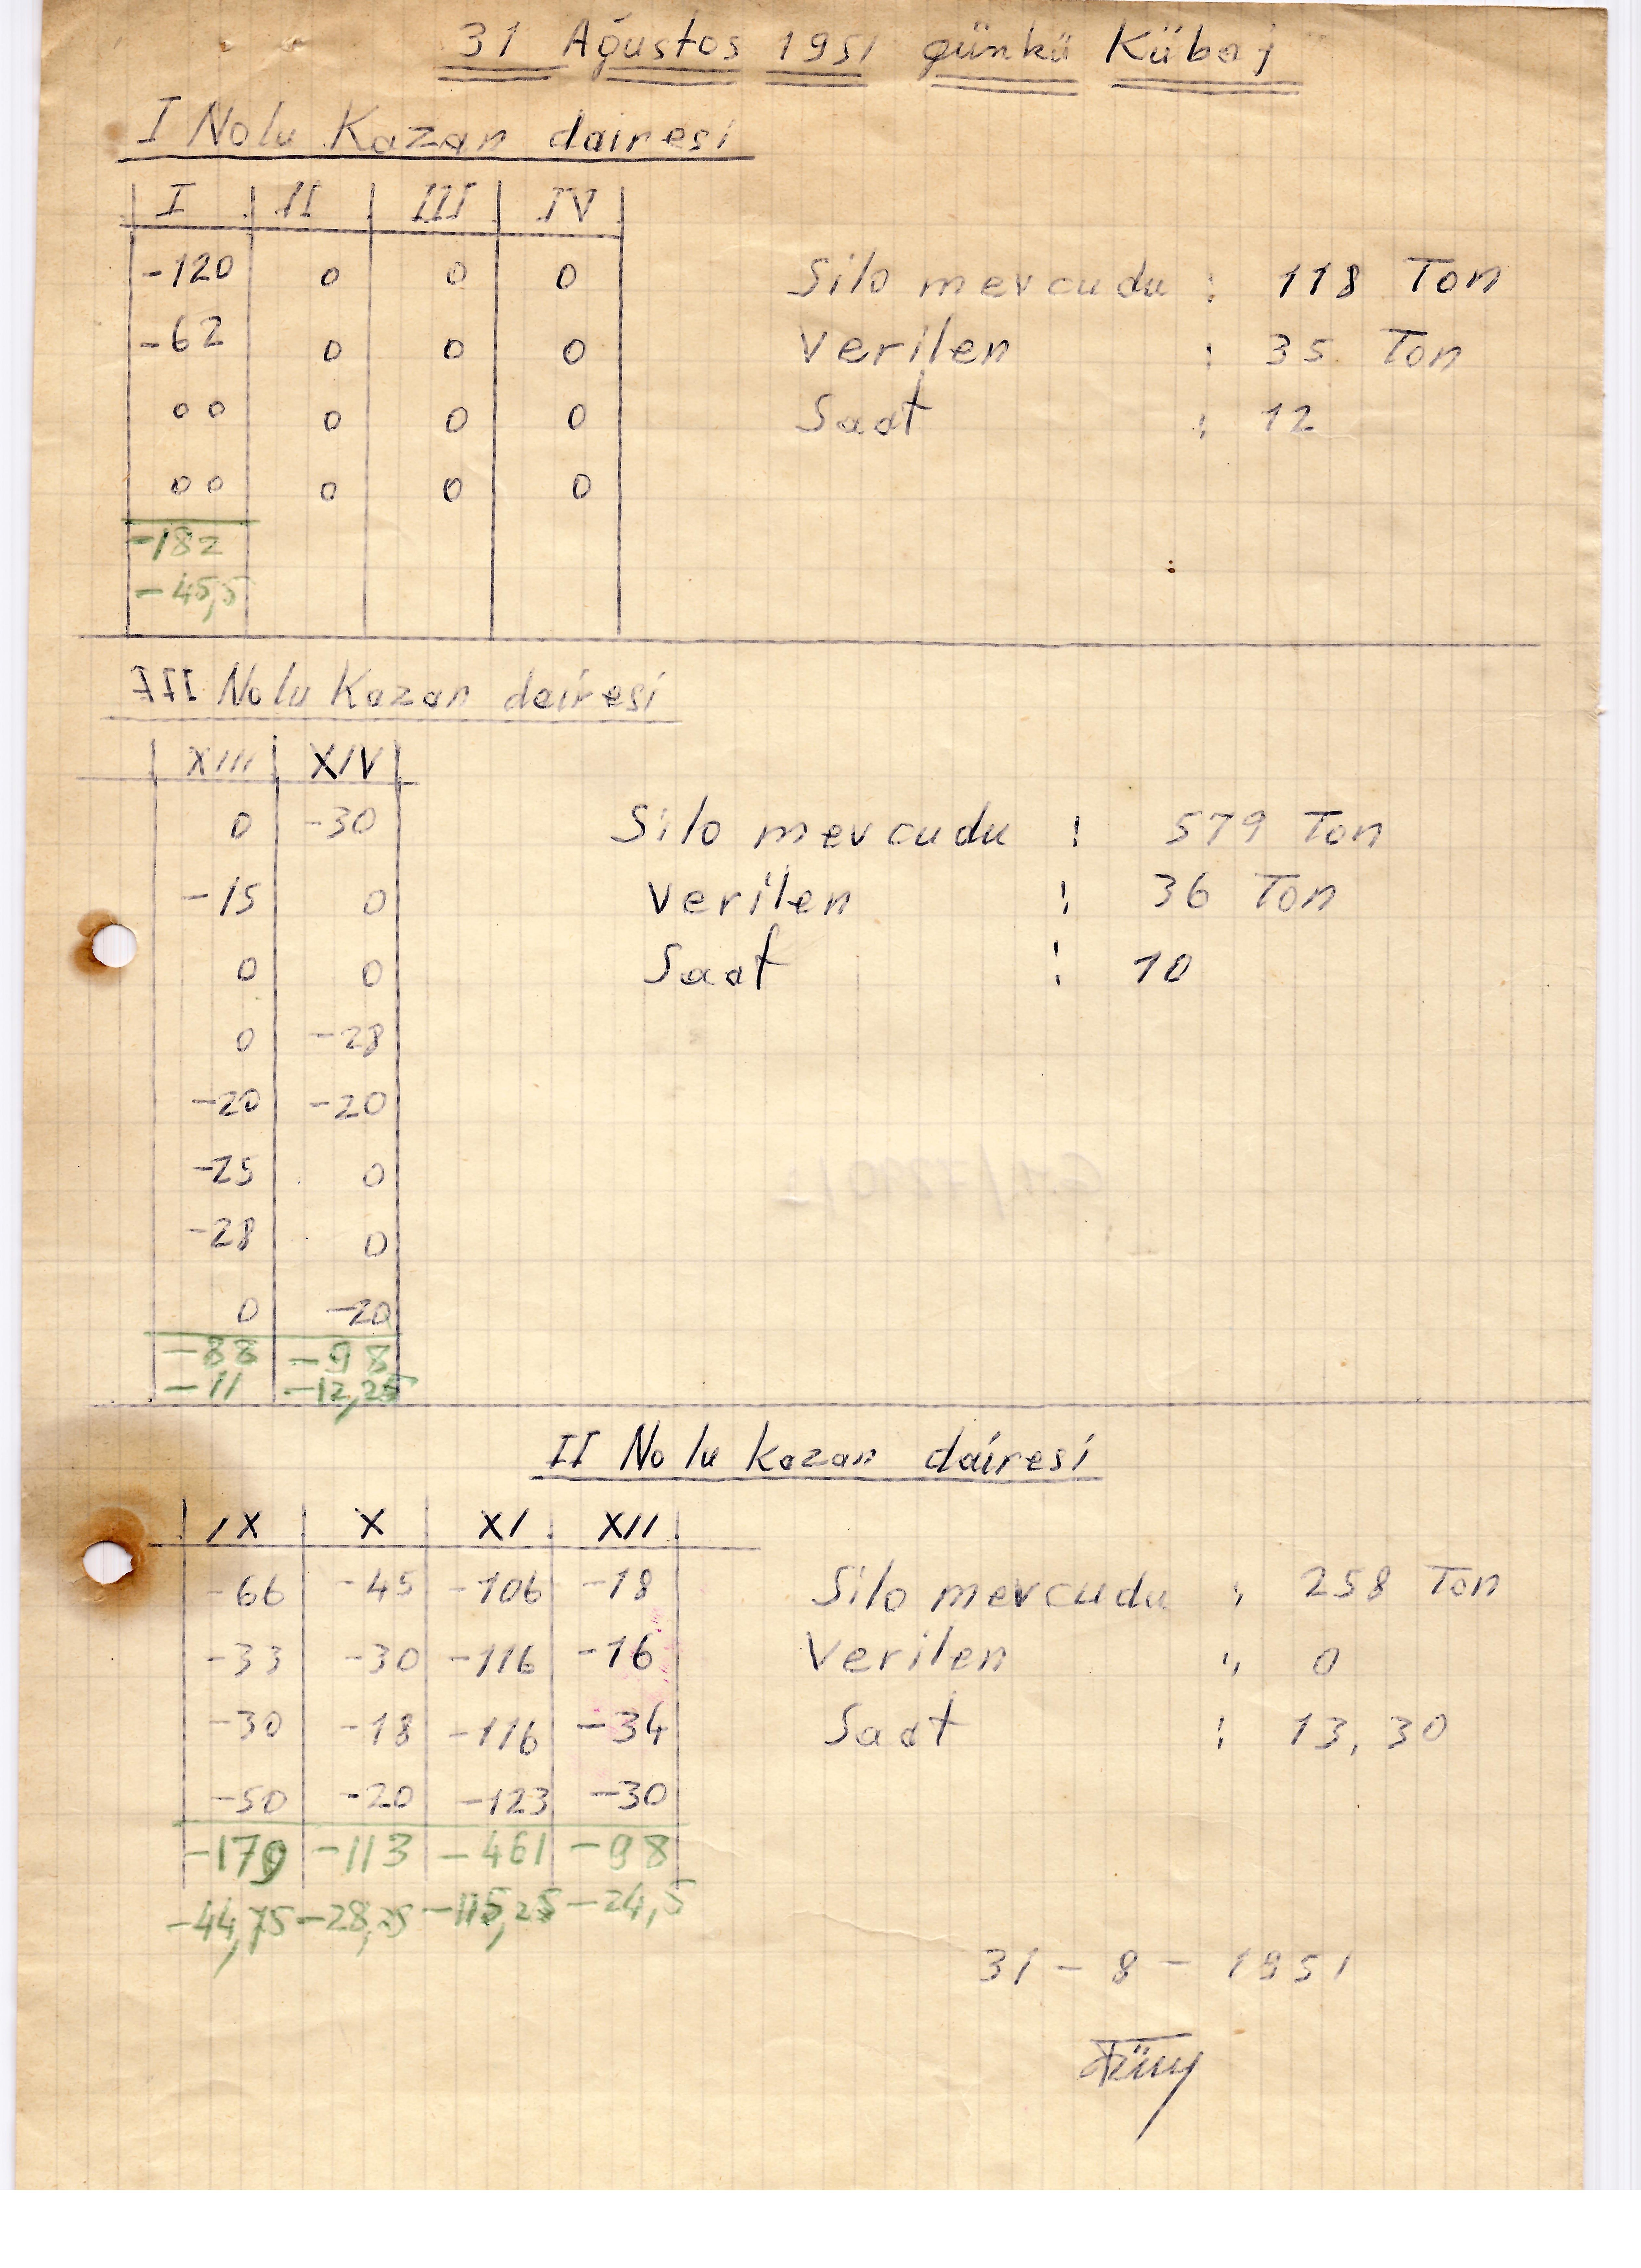 31 Ağustos 1951 günkü Kübaj
I Nolu Kazan dairesi
I II III IV
-120 0 0 0 Silo mevcudu : 118 Ton
-62 0 0 0 Verilen : 35 Ton
00 0 0 0 Saat : 12
00 0 0 0
-182
-45,5
III Nolu Kazan dairesi
XIII XIV
0 -30 Silo mevcudu : 579 Ton
-15 0 Verilen : 36 Ton
0 0 Saat : 10
0 -28
-20 -20
-25 0
-28 0
0 -20
-88 -98
-11 -12,25
II Nolu kazan dairesi
IX X XI XII
-66 -45 -106 -18 Silo mevcudu : 258 Ton
-33 -30 -116 -16 Verilen : 0
-30 -18 -116 -34 Saat : 13,30
-50 -20 -123 -30
-179 -113 -461 -98
-44,75 -28,25 -115,25 -24,5
31-8-1951